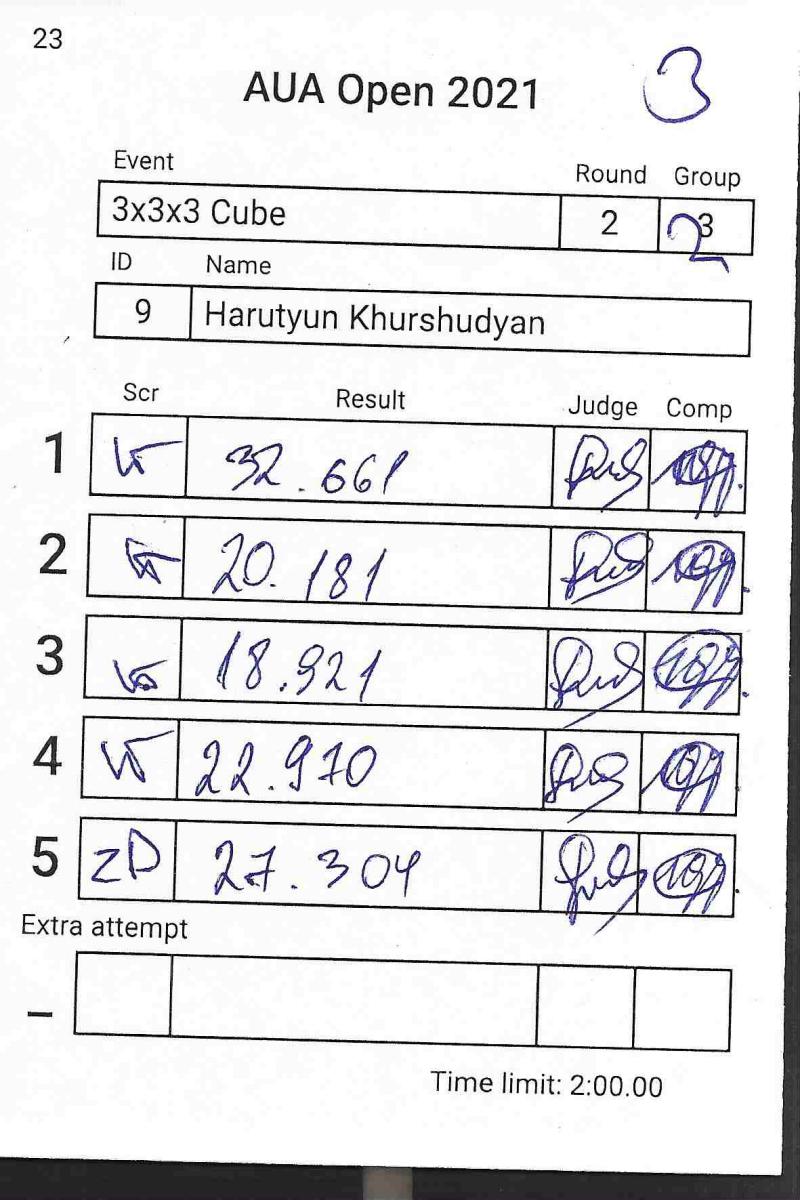 23
AUA Open 2021
3
Event Round Group
3x3x3 Cube 2 3
2
ID Name
9 Harutyun Khurshudyan
Scr Result Judge Comp
1 32.661
2 20.181
3 18.921
4 22.970
5 ZD 27.304
Extra attempt
–
Time limit: 2:00.00